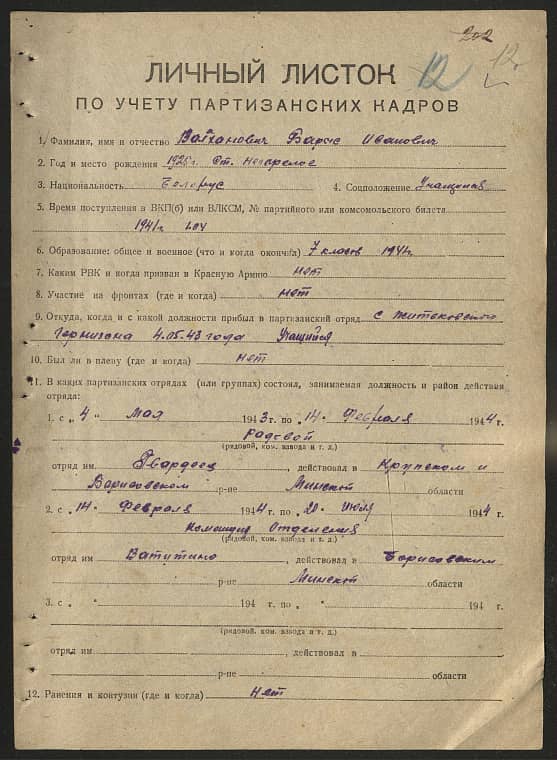 202
12 12
ЛИЧНЫЙ ЛИСТОК
ПО УЧЕТУ ПАРТИЗАНСКИХ КАДРОВ
1. Фамилия, имя и отчество Борис Иванович
2. Год и место рождения 1925г. Ст. Негорелое
3. Национальность Белорус 4. Соцположение Учащийся
5. Время поступления в ВКП(б) или ВЛКСМ, № партийного или комсомольского билета
1941г.
6. Образование: общее и военное (что и когда окончил) 7 класов 1941г.
7. Каким РВК и когда призван в Красную Армию нет
8. Участие на фронтах (где и когда) нет
9. Откуда, когда и с какой должности прибыл в партизанский отряд с
Гарнизона 4.05.43 года Учащийся
10. Был ли в плену (где и когда) нет
11. В каких партизанских отрядах (или группах) состоял, занимаемая должность и район действия
отряда:
1. с „ 4 " Мая 1943 г. по „ 14 " Февраля 1944 г.
Радовой
(рядовой, ком. взвода и т. д.)
отряд им Гвардеец, действовал в Крупском и
Борисовском р-не Минской области
2. с „ 14 " Февраля 1944 г. по „ 20 " Июля 1944 г.
Командир Отделения
(рядовой, ком. взвода и т. д.)
отряд им Ватутина, действовал в Борисовским
р-не Минской области
3. с „ " 194 г. по „ " 194 г.
(рядовой, ком. взвода и т. д.)
отряд им , действовал в
р-не области
12. Ранения и контузия (где и когда) Нет